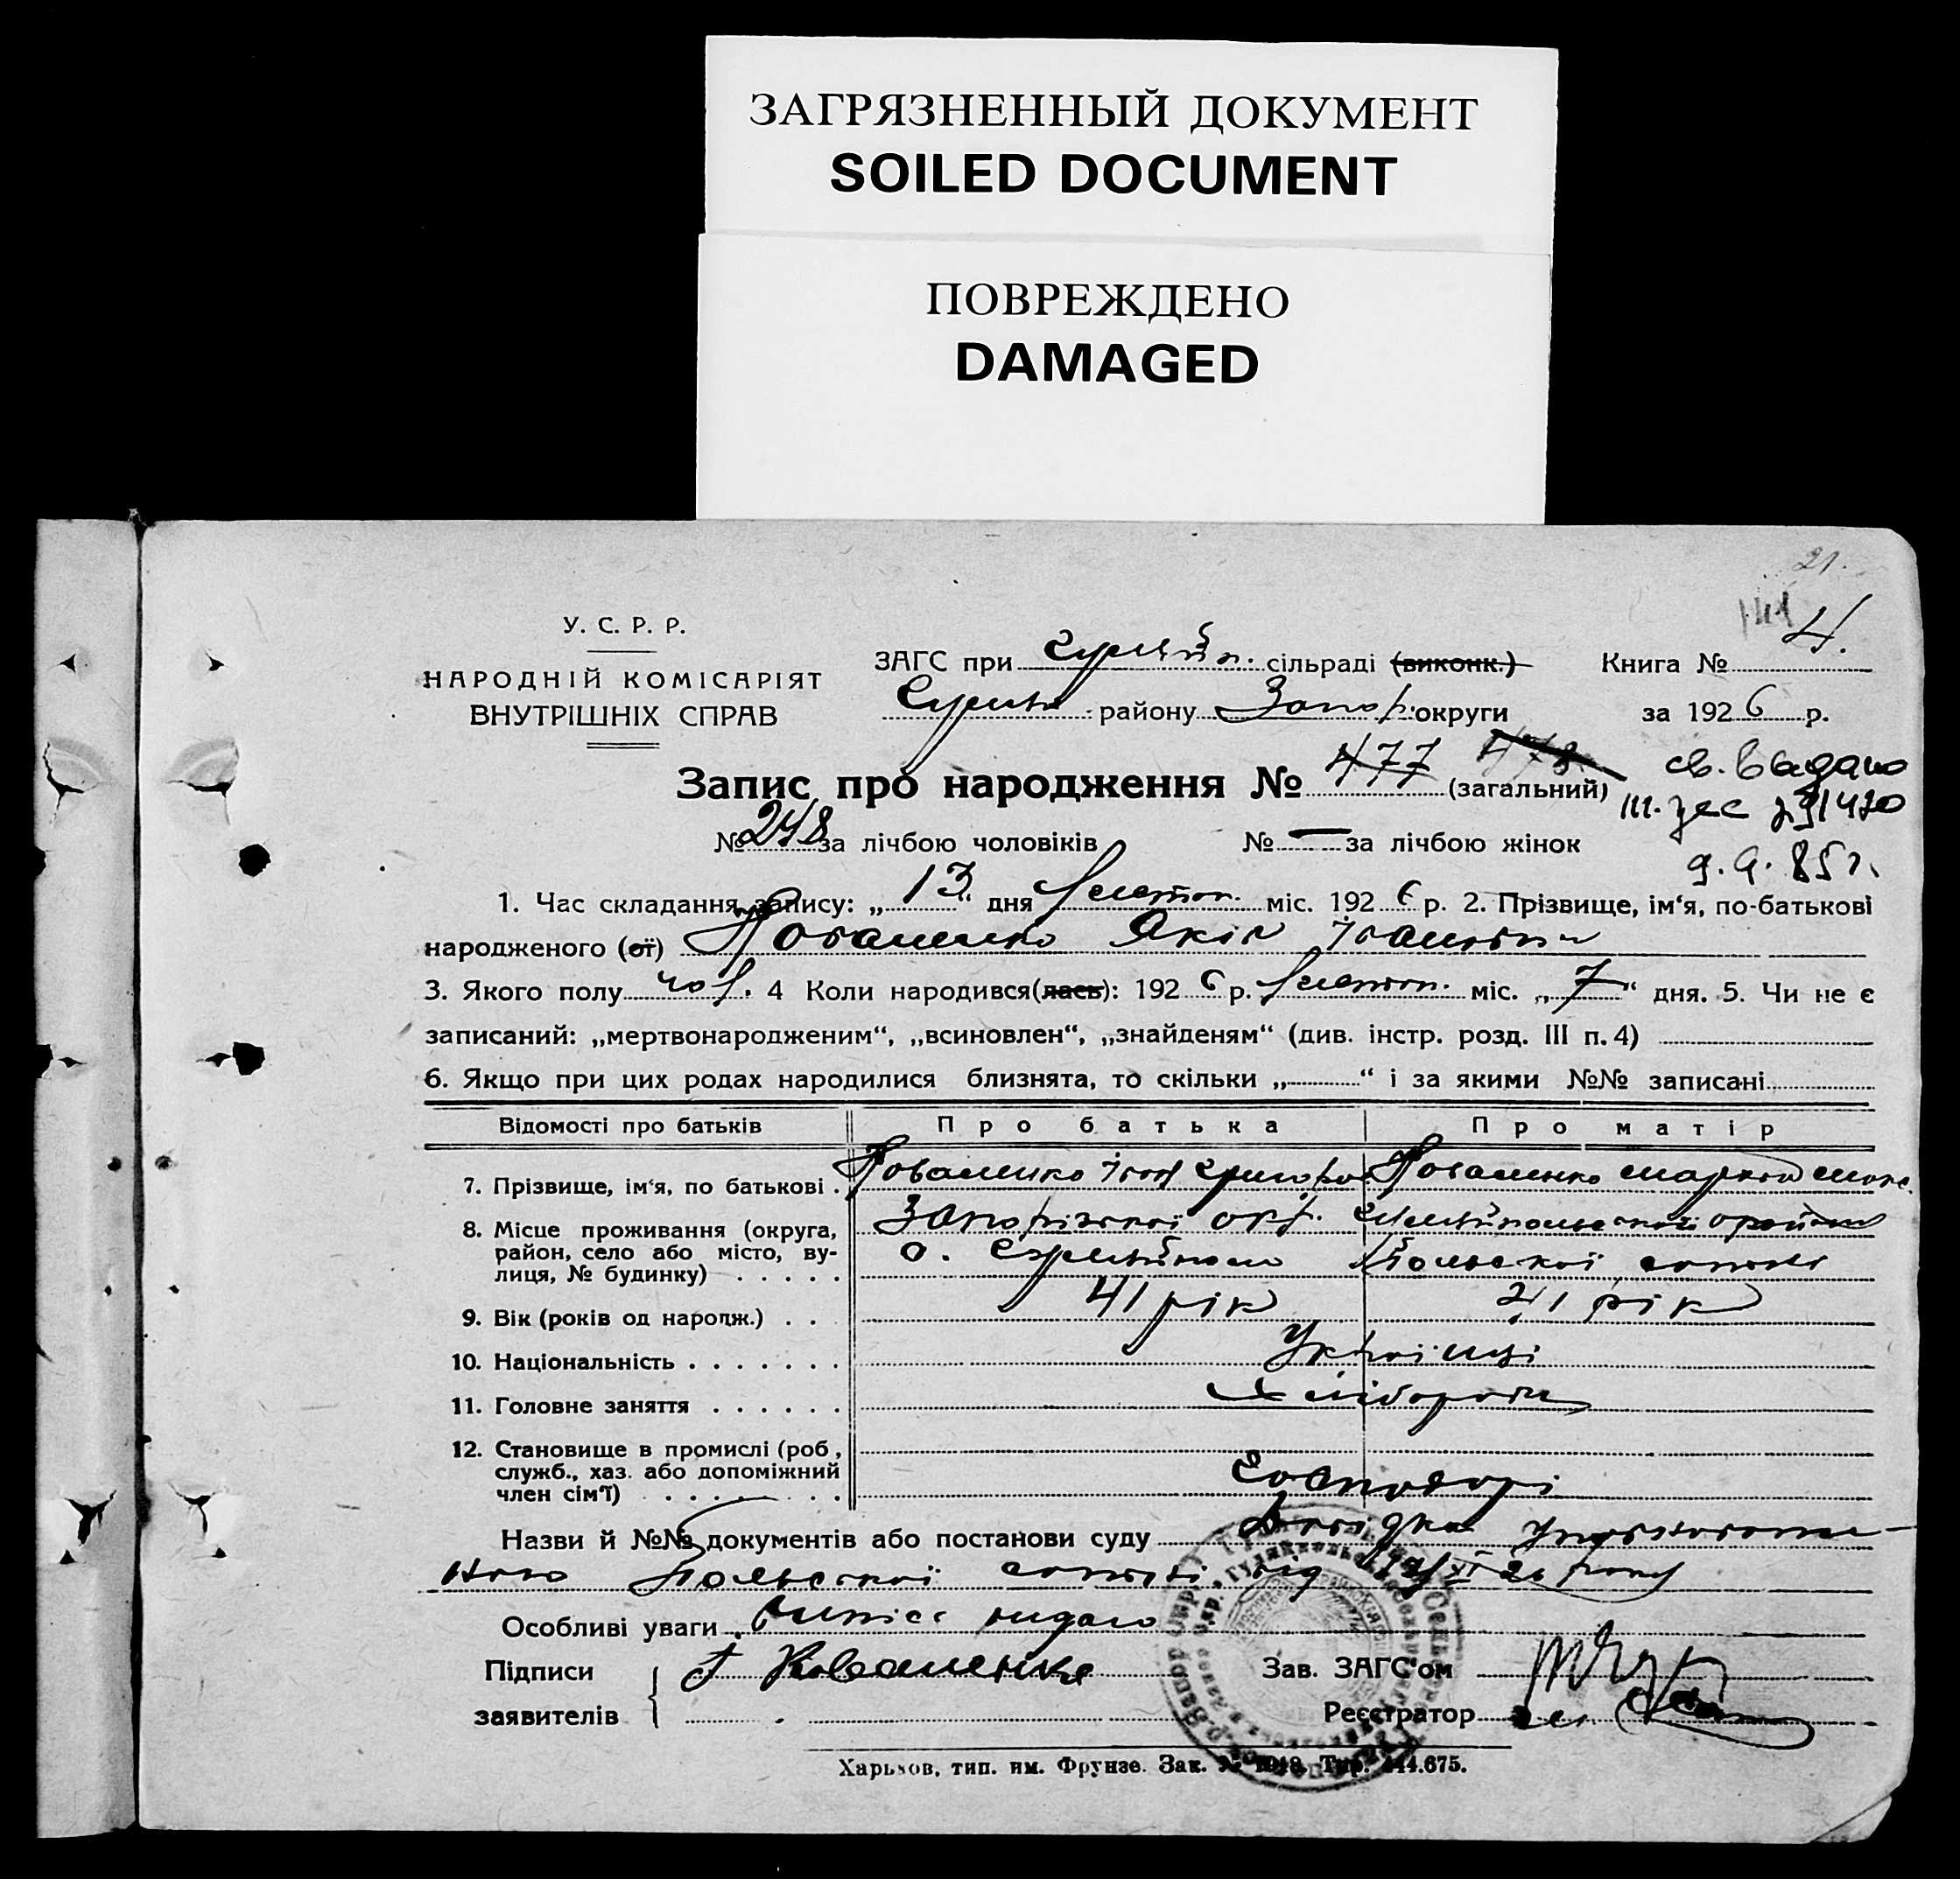 ЗАГРЯЗНЕННЫЙ ДОКУМЕНТ
SOILED DOCUMENT
ПОВРЕЖДЕНО
DAMAGED
21.
У. С. Р. Р.
НАРОДНІЙ КОМІСАРІЯТ
ВНУТРІШНІХ СПРАВ
ЗАГС при сільраді (виконк.)
району Запор. округи
Книга № 4.
за 1926 р.
Запис про народження № 477 478 (загальний)
св. выдано
9.9.85 г.
№ 248 за лічбою чоловіків № — за лічбою жінок
1. Час складання запису: „13“ дня Листоп. міс. 1926 р. 2. Прізвище, ім‘я, по-батькові
народженого (ої) Коваленко Яків Іванович
3. Якого полу чол. 4 Коли народився(лась): 1926 р. Листоп. міс. „7“ дня. 5. Чи не є
записаний: „мертвонародженим“, „всиновлен“, „знайденям“ (див. інстр. розд. III п. 4)
6. Якщо при цих родах народилися близнята, то скільки „ “ і за якими №№ записані
Відомості про батьків Про батька Про матір
7. Прізвище, ім‘я, по батькові . Коваленко Іван Григоров Коваленко
8. Місце проживання (округа, Запорізької окр.
район, село або місто, ву-
лиця, № будинку) . . . . . Польської сотні
9. Вік (років од народж.) . . 41 рік 41 рік
10. Національність . . . . . . . Українці
11. Головне заняття . . . . . . Хлібороби
12. Становище в промислі (роб.,
служб., хаз. або допоміжний
член сім‘ї) . . . . . . . . Господарі
Назви й №№ документів або постанови суду Довідка уповноваже-
ного Польської сотні від XI 26 року
Особливі уваги Випис видано
Підписи Коваленко Зав. ЗАГС‘ом
заявителів Реєстратор
Харьков, тип. им. Фрунзе. Зак. № 1018. Тир. 444.675.